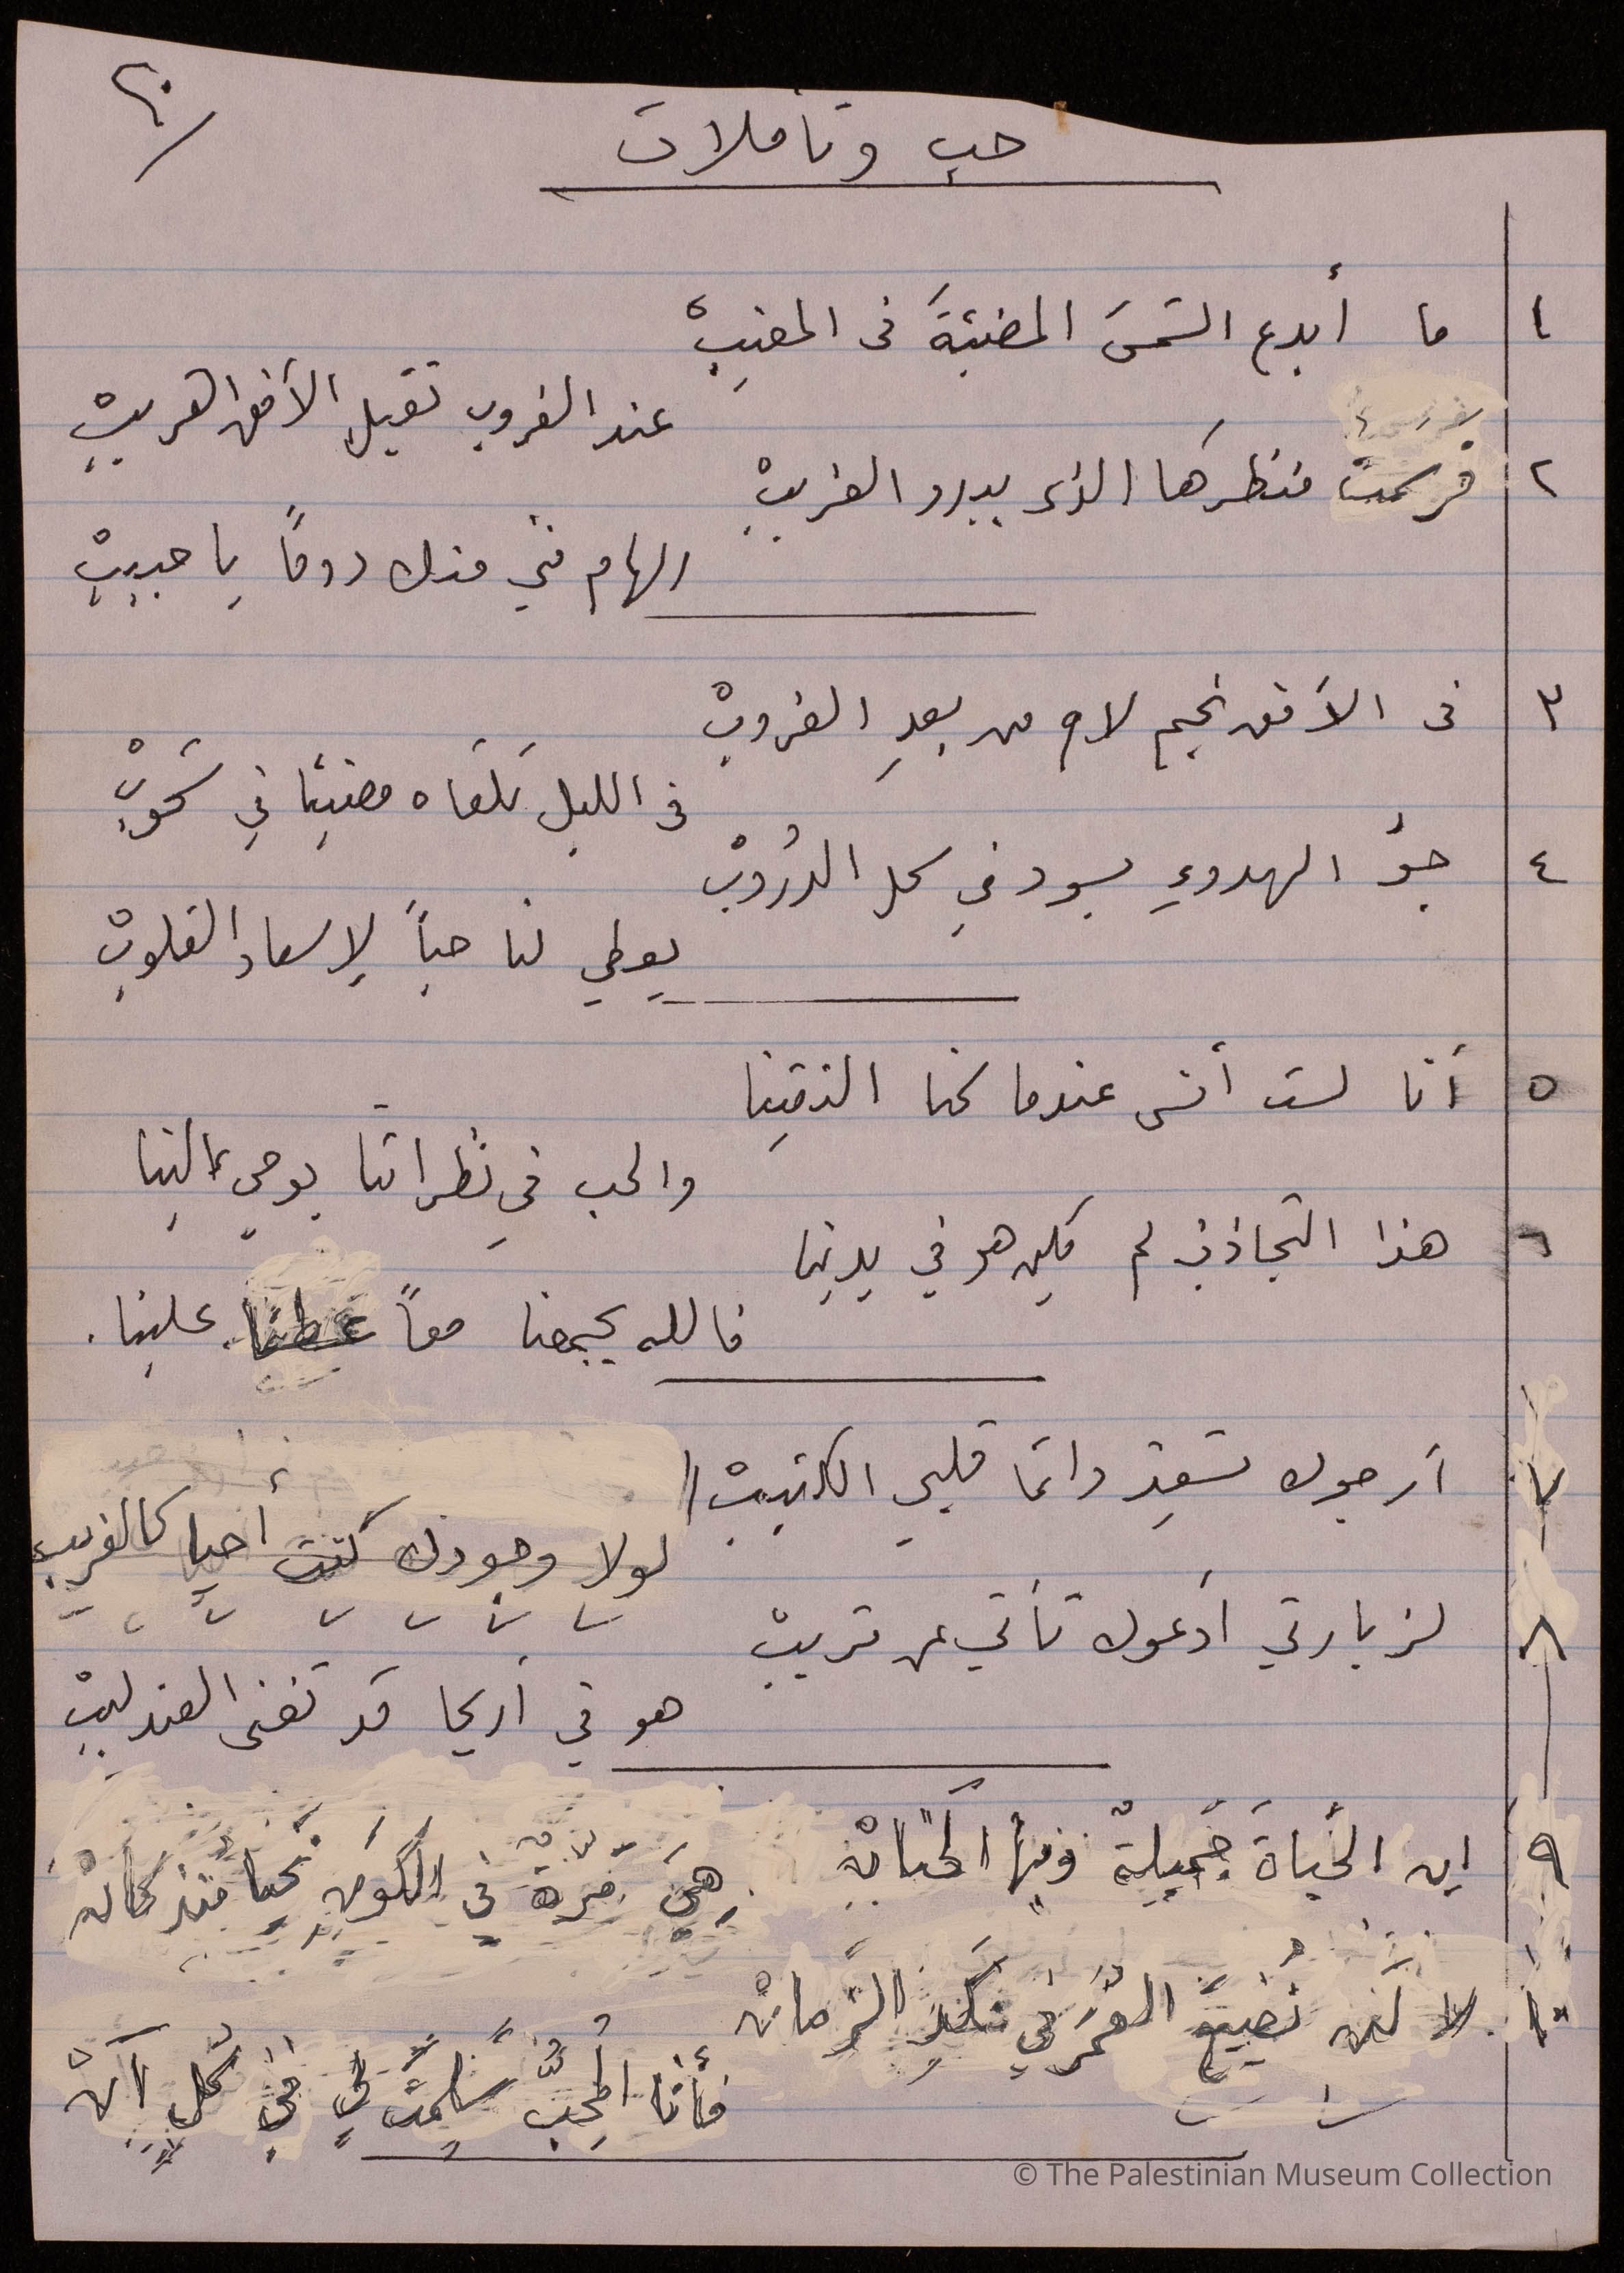 ٢٠
حب وتأملات
١ ما أبدع الشمسَ المضيئةَ في المغيبْ
عند الغروب تقبل الأفق القريبْ
٢ فرسمت منظرَها الذي يبدو الغريبْ
إلهام فني منك دوماً يا حبيبْ
٣ في الأفق نجم لاح من بعدِ الغروبْ
في الليل تلقاه مضيئا في
٤ جوُّ الهدوءِ يسود في كل الدُروبْ
يعطي لنا حباً لإسعاد القلوبْ
٥ أنا لست أنسى عندما كنا التقينا
والحب في نظراتنا يوحي إلينا
٦ هذا التجاذب لم يكن هو في يدينا
فالله يجمعنا معاً عطفا علينا.
٧ أرجوك تسعد دائما قلبي الكئيبْ
لولا وجودك كنت أحيا كالغريب
٨ لزيارتي أدعوك تأتي عن قريبْ
هو في أريحا قد تغنى العندليبْ
٩ إن الحَياةَ جَميلةٌ وفيها الحَنانْ
هيَ مَرَّةٌ في الكونِ نَحيا منذ كانْ
١٠ لا لن نُضيعَ العُمرَ في نكدِ الزَمانْ
فأنا المُحِبُّ سَلِمتَ لي في كُلِ آنْ
© The Palestinian Museum Collection